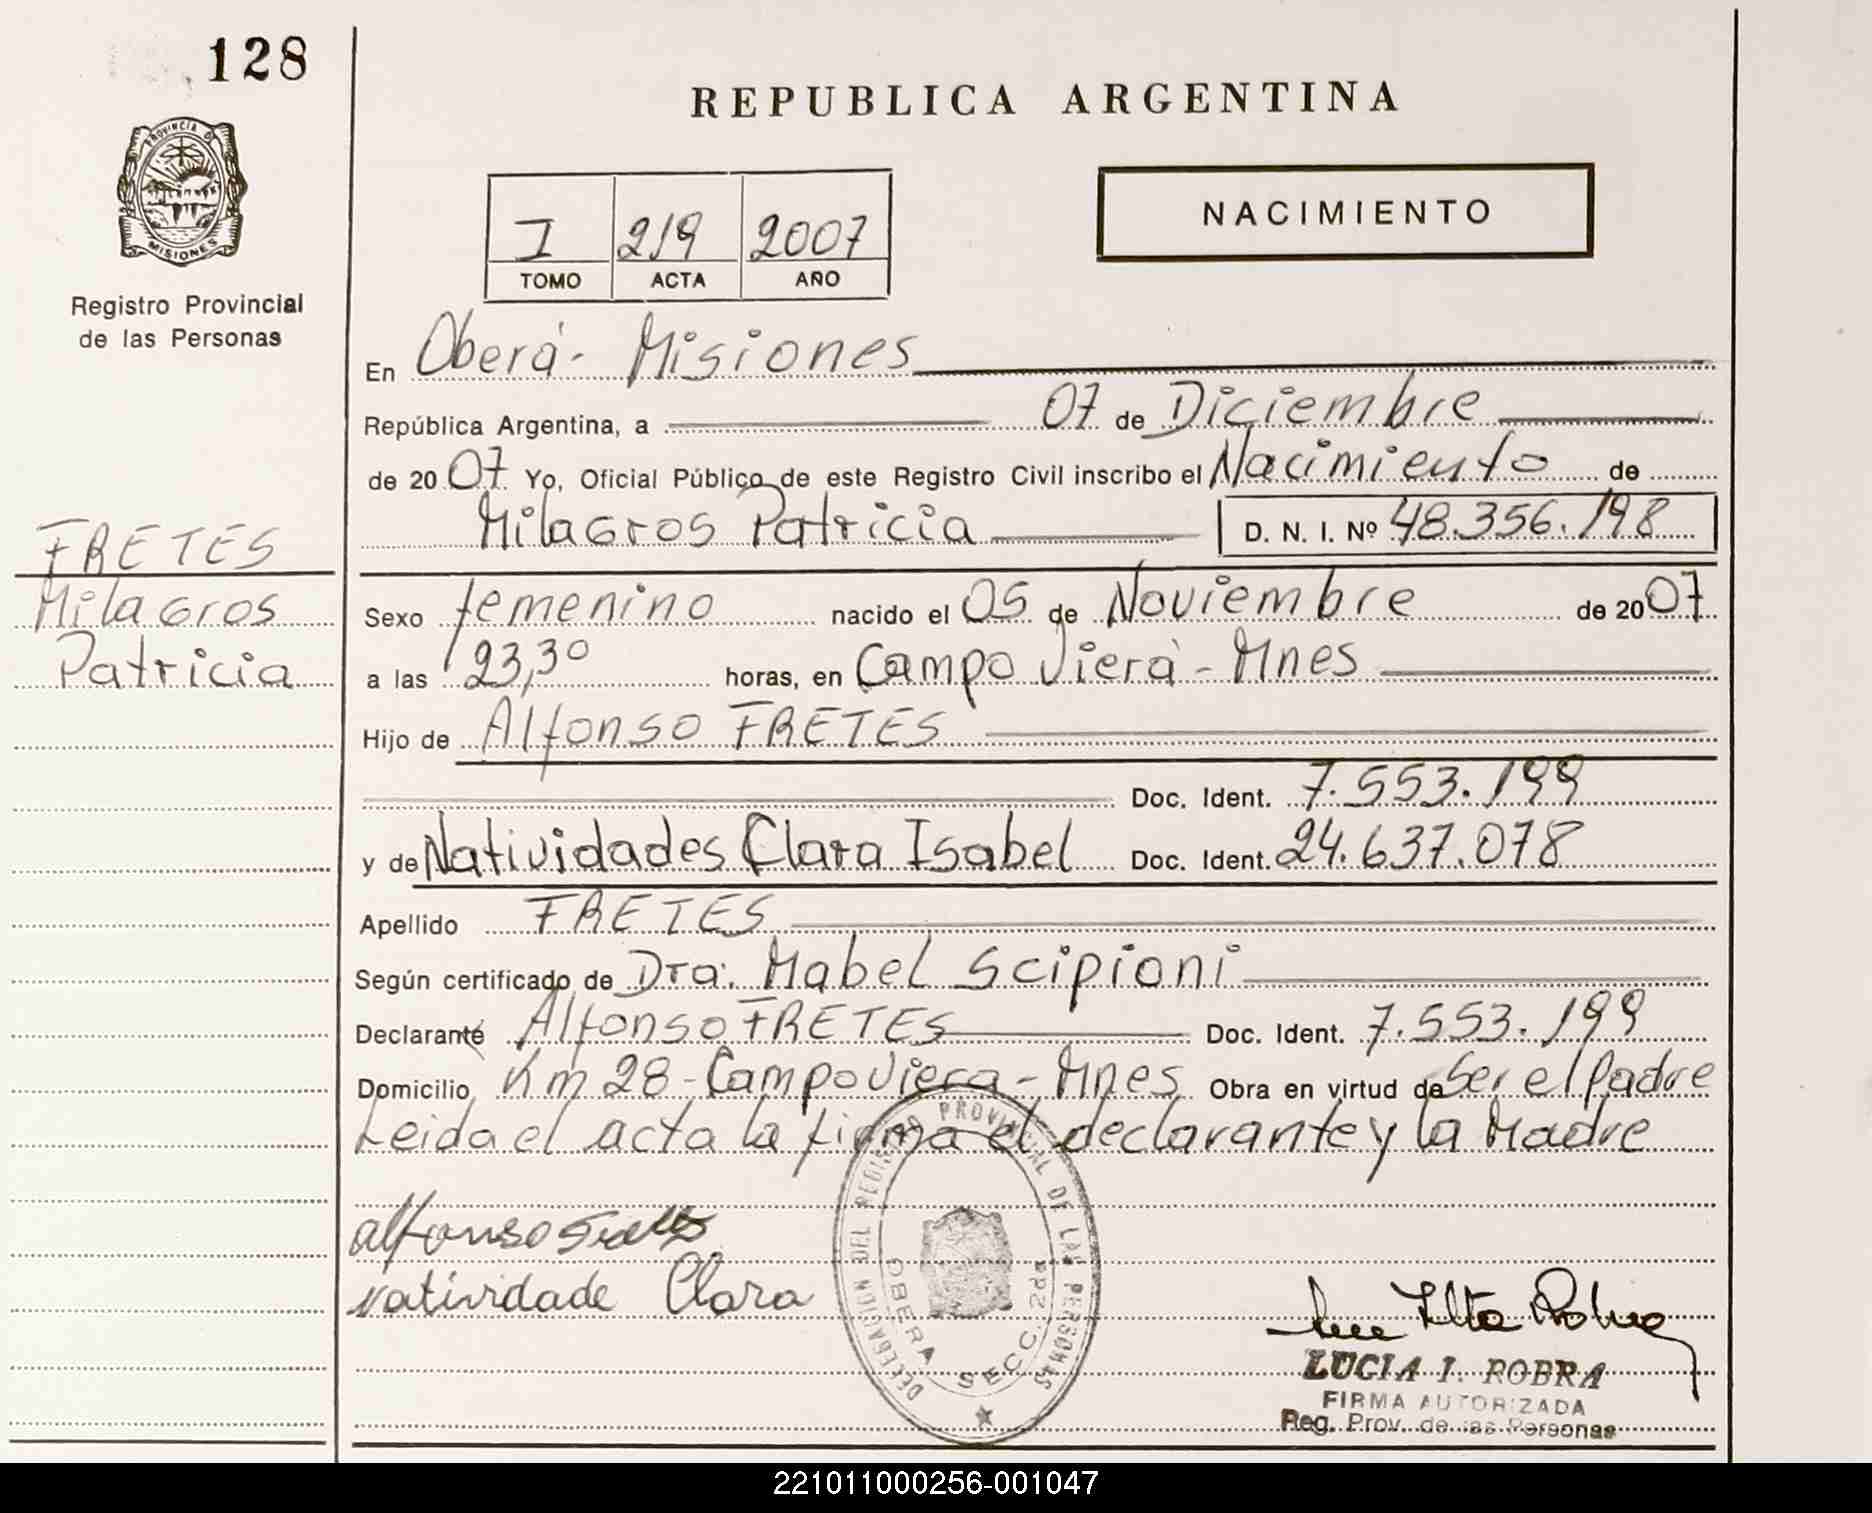 128
PROVINCIA DE
MISIONES
Registro Provincial
de las Personas
FRETES
Milagros
Patricia
REPUBLICA ARGENTINA
I 219 2007
TOMO ACTA AÑO
NACIMIENTO
En Oberá - Misiones
República Argentina, a 07 de Diciembre
de 2007 Yo, Oficial Público de este Registro Civil inscribo el Nacimiento de
Milagros Patricia D. N. I. Nº 48.356.198
Sexo femenino nacido el 05 de Noviembre de 2007
a las 23,30 horas, en Campo Viera - Mnes
Hijo de Alfonso FRETES
Doc. Ident. 7.553.199
y de Natividades Clara Isabel Doc. Ident. 24.637.078
Apellido FRETES
Según certificado de Dra. Mabel Scipioni
Declarante Alfonso FRETES Doc. Ident. 7.553.199
Domicilio Km 28 - Campo Viera - Mnes Obra en virtud de Ser el Padre
Leida el acta la firma el declarante y la Madre
alfonso
natividade Clara
DELEGACION DEL REGISTRO PROVINCIAL DE LAS PERSONAS
OBERA SECC. 2da
LUCIA I. ROBRA
FIRMA AUTORIZADA
Reg. Prov. de las Personas
221011000256-001047